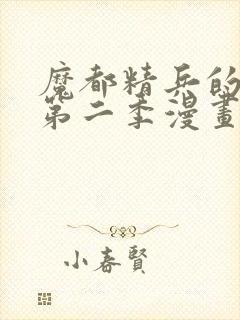 魔都精兵的
第二季漫畫
小春賢